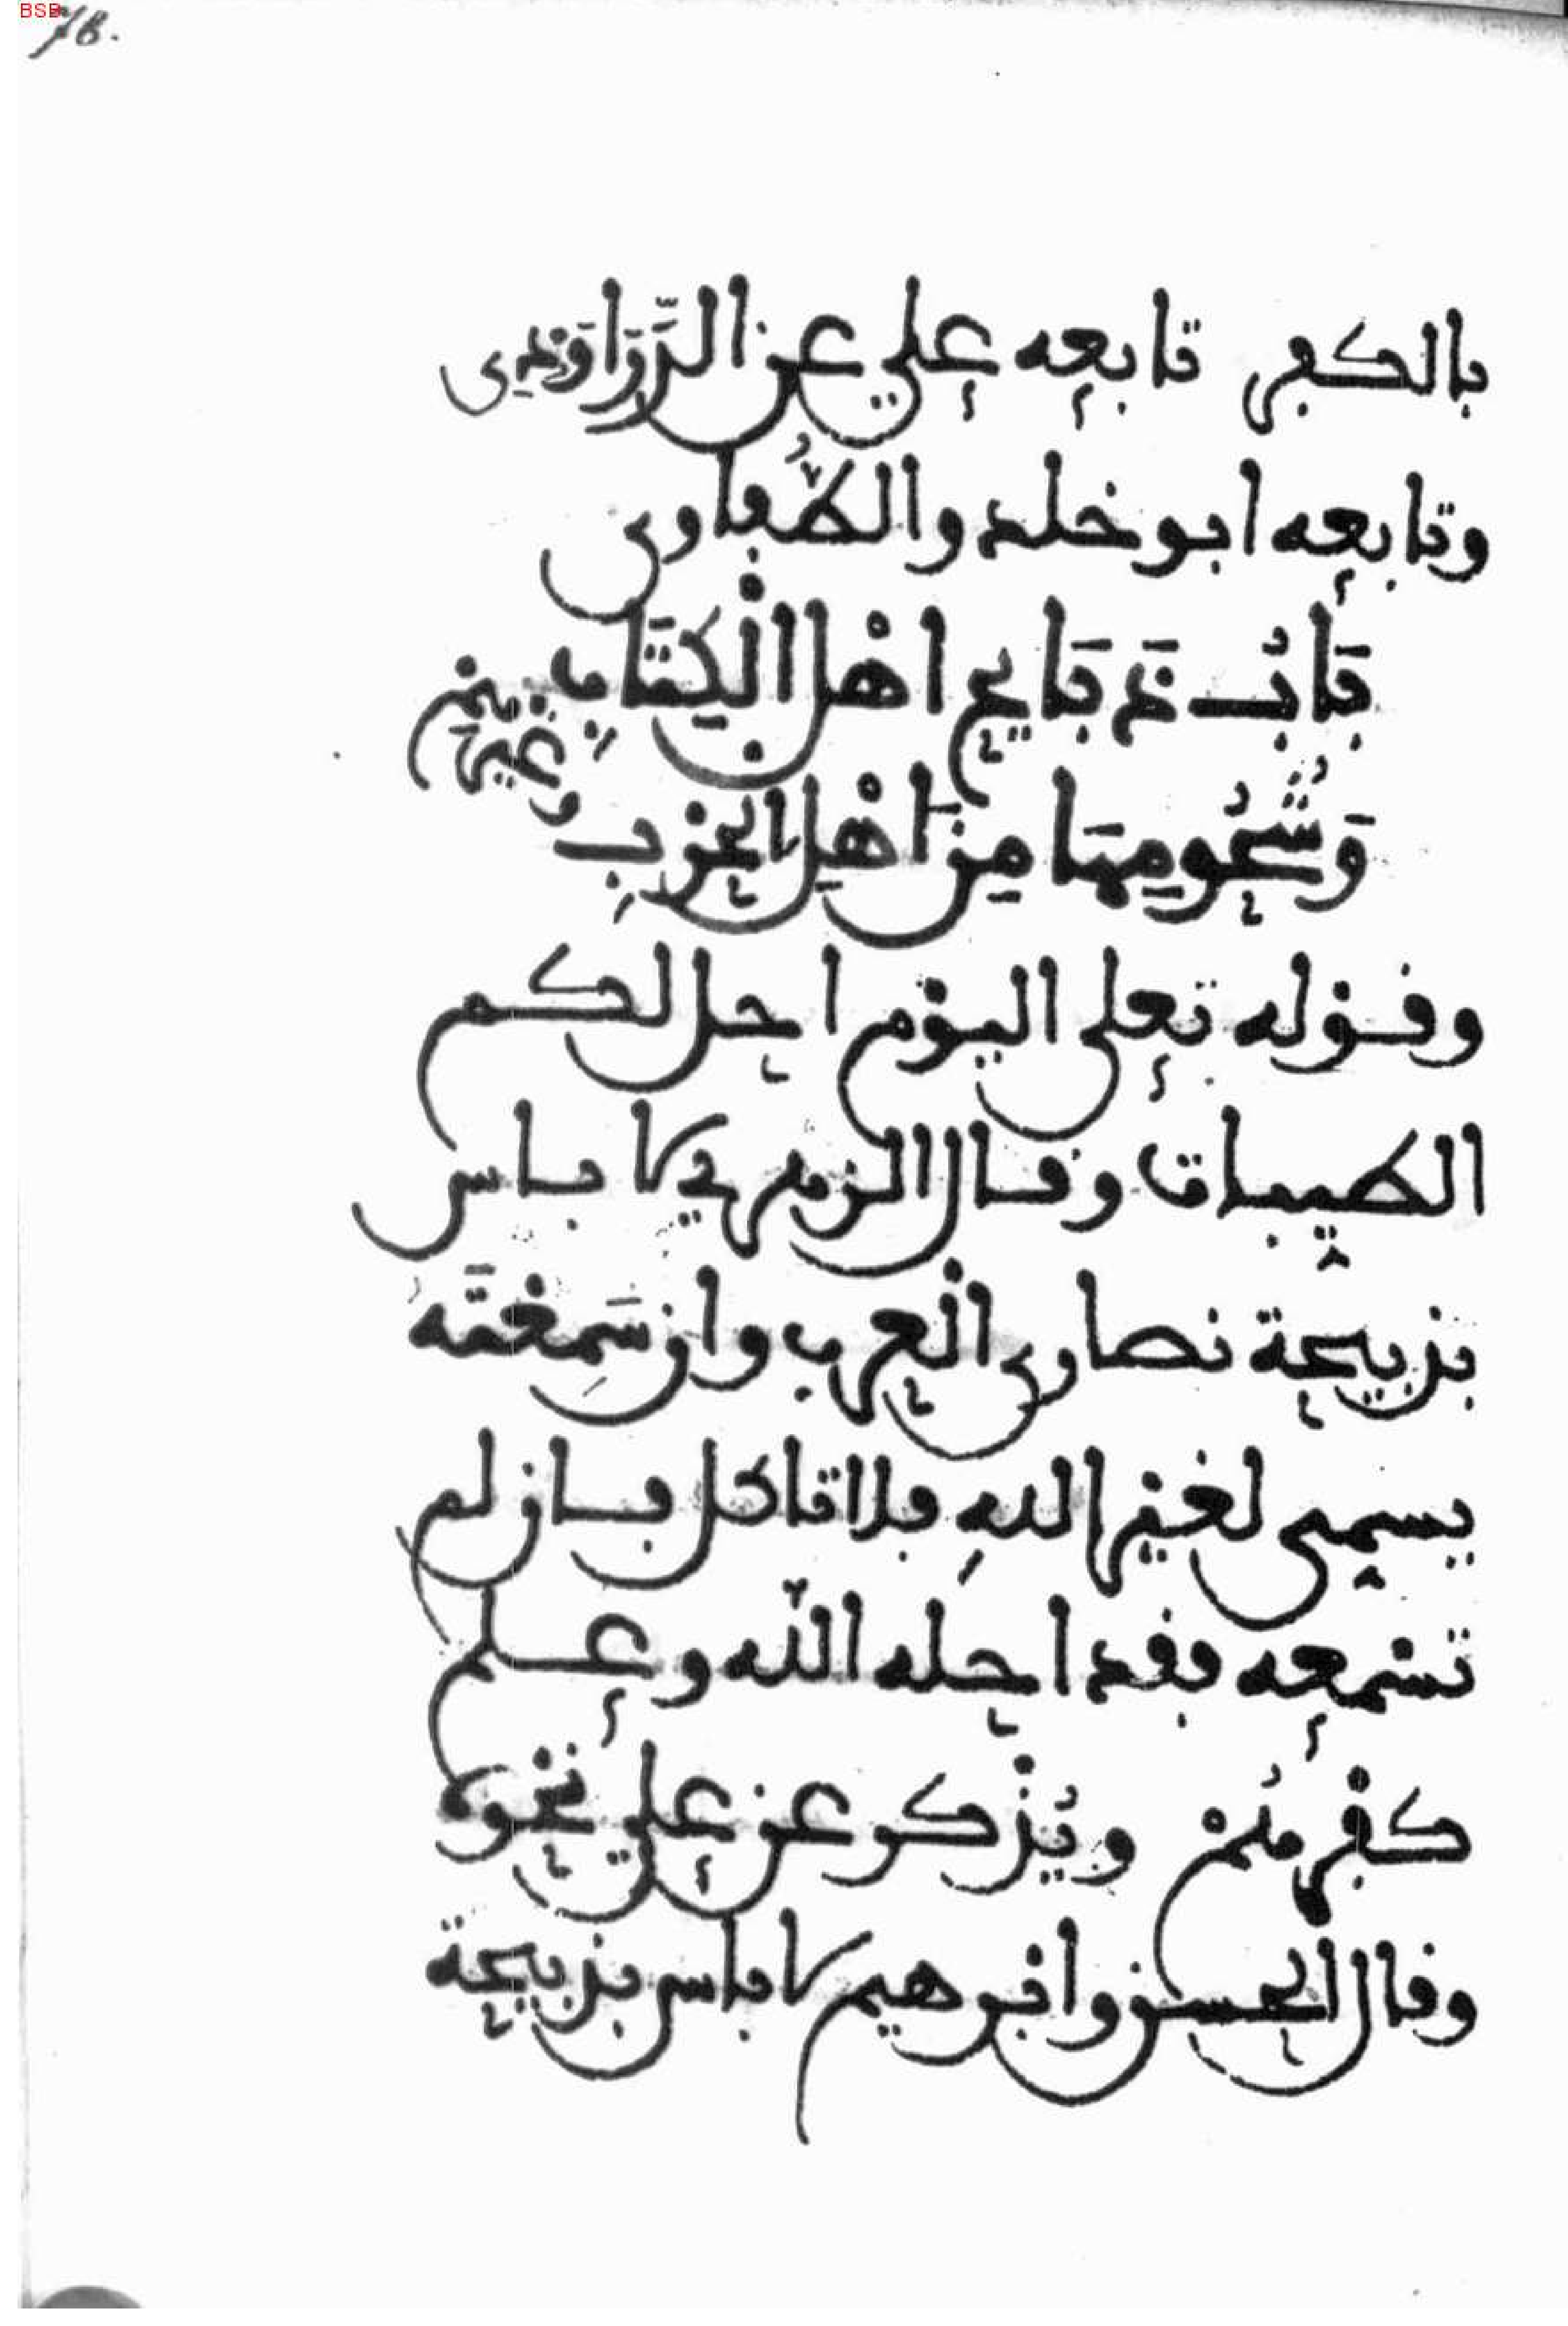 BSB
78.
بالكفر تابعه علي عن الدَّرَاوَرْدِي
وتابعه ابو خلد والطُّفاوي
بَابُ ذَبَايح اهْل الْكِتَابِ
وَشُحُومِهَا مِنَ اهْلِ الحرْبِ وغيرهم
وقوله تعلى اليوْم احل لكم
الطيبات وقال الزهري لا باس
بذبيحة نصارى الْعرب وان سَمِعْتَه
يسمي لغير اللهِ فلا تاكل فان لم
تسْمعه فقد احله اللّه وعلم
كفْرهُمْ ويُذْكر عن علي نحْوه
وقال الحسن وابْرهيم لا باس بذبيحة